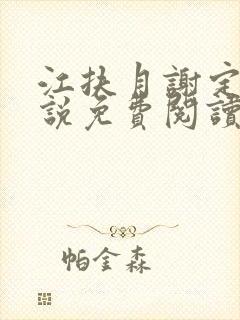 江扶月謝定
説免費閱讀
帕金森